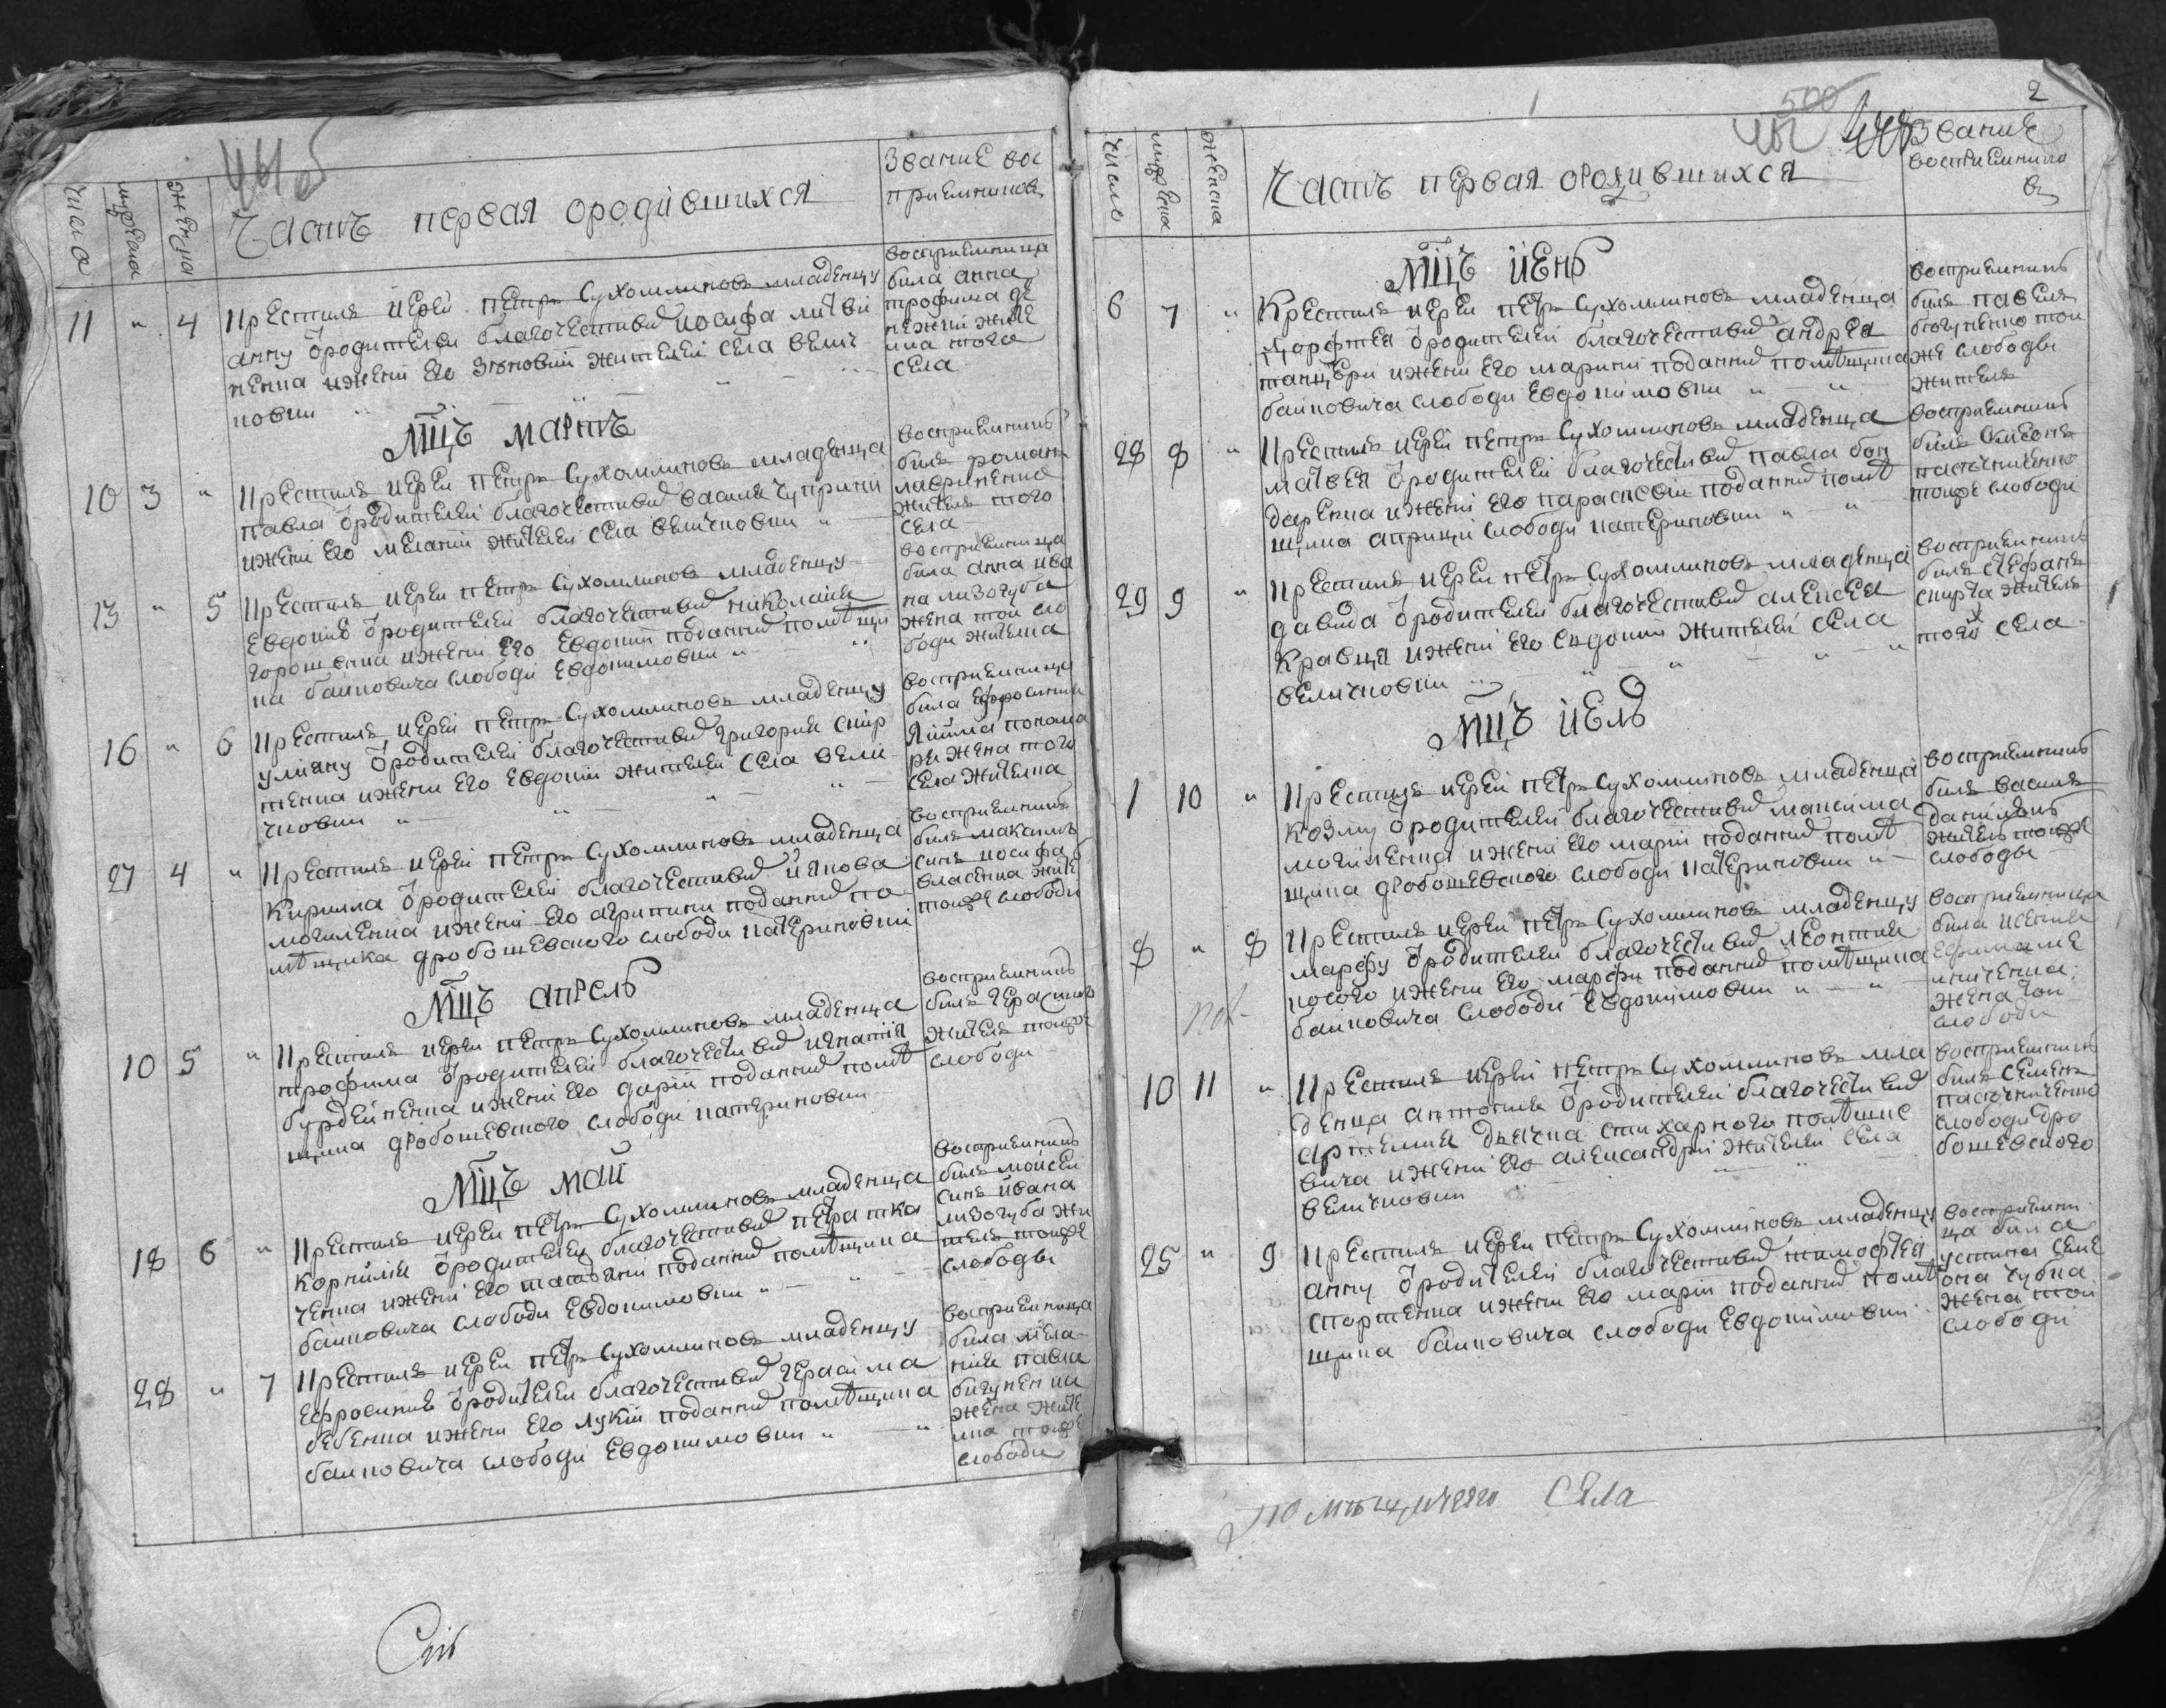 Числа
мужеска
женска
Часть первая ородившихся
Звание вос
приемников
11 " 4 Крестилъ иерей петръ Сухомлиновъ младенцу
анну ѿродителей благочестивих иосифа литви
ненка ижени его зѣновии жителей села велич
ковки
восприемница
била анна
трофима де
нежки жите
лка того
села
Мцъ мартъ
10 3 " Крестилъ иерей петръ Сухомлиновъ младенца
павла ѿродителей благочестивих василя чуприни
ижени его мелании жителей села величковки "
восприемникъ
билъ романъ
лавриненко
житель того
села
13 " 5 Крестилъ иерей петръ Сухомлиновъ младенцу
Евдокию ѿродителей благочестивих николаия
горошенка ижени его Евдокии поданних помѣщи
ка байковича слободи Евдокимовки "
восприемница
била анна ива
на лизогуба
жена той сло
боди жителка
16 " 6 Крестилъ иерей петръ Сухомлиновъ младенцу
улияну ѿродителей благочестивих григория спир
тенка ижени его Евдокии жителей села вели
чковки "
восприемница
била Ефросиния
якима понома
ря жена того
села жителка
27 4 " Крестилъ иерей петръ Сухомлиновъ младенца
Кирилла ѿродителей благочестивих иякова
могиленка ижени его агрипини поданних по
мѣщика дробошевского слободи катериновки
восприемникъ
билъ максимъ
синъ иосифа
власенка жите
тоиже слободи
Мцъ апрель
10 5 " Крестилъ иерей петръ Сухомлиновъ младенца
трофима ѿродителей благочестивих игнатия
бурдейненка ижени его дарии поданних помѣ
щика дробошевского слободи катериновки
восприемникъ
билъ герасимъ
житель тоиже
слободи
Мцъ май
18 6 " Крестилъ иерей петръ Сухомлиновъ младенца
корнилия ѿродителей благочестивих петра тка
ченка ижени его татияни поданних помѣщика
байковича слободи Евдокимовки "
восприемникъ
билъ мойсей
синъ ивана
лизогуба жи
тель тоиже
слободы
28 " 7 Крестилъ иерей петръ Сухомлиновъ младенцу
Ефросинию ѿродителей благочестивих герасима
бебенка ижени его лукии поданних помѣщика
байковича слободи Евдокимовки "
восприемница
била мела
ния павла
бигуненка
жена жите
лка тоиже
слободи
2
Число
мужеска
женска
Часть первая ородившихся
Звание
восприемнико
въ
Мцъ июнь
6 7 " Крестилъ иерей петръ Сухомлиновъ младенца
дорофтея ѿродителей благочестивих андрея
танцюри ижени его марини поданних помѣщика
байковича слободи Евдокимовки "
восприемникъ
билъ павелъ
бигуненко той
же слободы
житель
28 8 " Крестилъ иерей петръ Сухомлиновъ младенца
матвея ѿродителей благочестивих павла бон
даренка ижени его параскевии поданних помѣ
щика слободи катериновки "
восприемникъ
билъ симеонъ
пасечниченко
тоиже слободи
29 9 " Крестилъ иерей петръ Сухомлиновъ младенца
давида ѿродителей благочестивих алексея
кравця ижени его Евдокии жителей села
величковки "
восприемникъ
билъ стефанъ
спирта житель
того села
Мцъ июль
1 10 " Крестилъ иерей петръ Сухомлиновъ младенца
козму ѿродителей благочестивих максима
могиленка ижени его марии поданних помѣ
щика дробошевского слободи катериновки "
восприемникъ
билъ василь
житель тоиже
слободы
8 " 8 Крестилъ иерей петръ Сухомлиновъ младенцу
марфу ѿродителей благочестивих леонтия
косого ижени его марфи поданних помѣщика
байковича слободи Евдокимовки "
восприемница
била ксения
Ефима ме
лниченка
жена той
слободи
10 11 " Крестилъ иерей петръ Сухомлиновъ мла
денца антония ѿродителей благочестивих
артемия дьячка стихарного
вича ижени его александри жителей села
величковки "
восприемникъ
билъ семенъ
пасечниченко
слободи дро
бошевского
25 " 9 Крестилъ иерей петръ Сухомлиновъ младенцу
анну ѿродителей благочестивих тимофея
ижени его марии поданних помѣ
щика байковича слободи Евдокимовки
восприемни
ца била
устиния симе
она чубка
жена той
слободи
Села